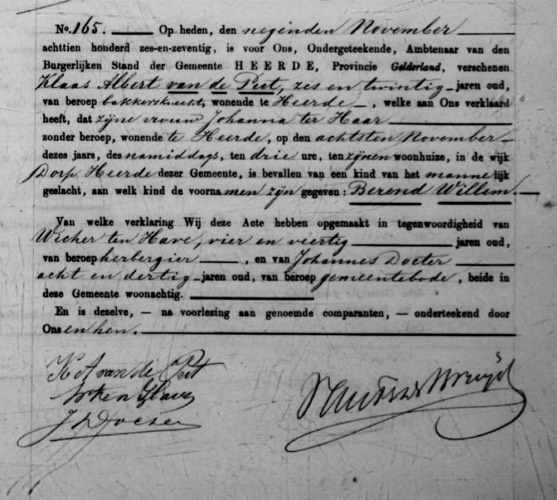 No. 165. Op heden, den neginden November
achttien honderd zes-en-zeventig, is voor Ons, Ondergeteekende, Ambtenaar van den
Burgerlijken Stand der Gemeente HEERDE, Provincie Gelderland, verschenen
Klaas Albert van de Put, zes en twintig jaren oud,
van beroep bakkersknecht, wonende te Heerde —, welke aan Ons verklaard
heeft, dat zijne vrouw Johanna ter Haar
zonder beroep, wonende te Heerde, op den achtsten November
dezes jaars, des namiddags, ten drie ure, ten zijnen woonhuize, in de wijk
Dorp Heerde dezer Gemeente, is bevallen van een kind van het mannelijk
geslacht, aan welk kind de voornamen zijn gegeven: Berend Willem. —
Van welke verklaring Wij deze Acte hebben opgemaakt in tegenwoordigheid van
Wicher ten Have, vier en veertig jaren oud,
van beroep herbergier, en van Johannes Docter
acht en dertig jaren oud, van beroep gemeentebode, beide in
deze Gemeente woonachtig.
En is dezelve, — na voorlezing aan genoemde comparanten, — onderteekend door
Ons en hen.
K A van de Put
ten Have
J Docter